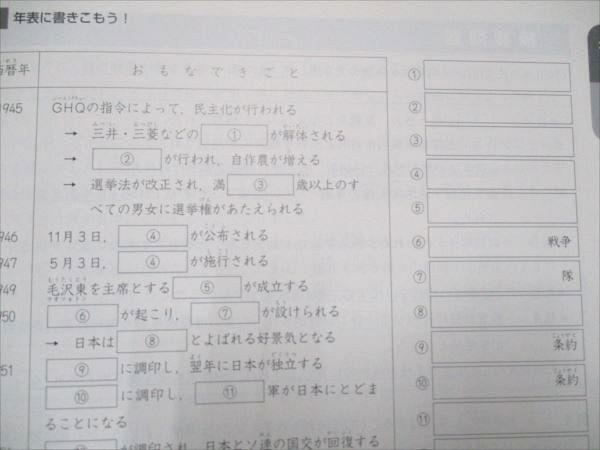 年表に書きこもう！
暦年 おもなできごと
1945 GHQの指令によって，民主化が行われる
→ 三井・三菱などの ① が解体される
→ ② が行われ，自作農が増える
→ 選挙法が改正され，満 ③ 歳以上のす
べての男女に選挙権があたえられる
946 11月3日， ④ が公布される
947 5月3日， ④ が施行される
949 毛沢東を主席とする ⑤ が成立する
950 ⑥ が起こり， ⑦ が設けられる
→ 日本は ⑧ とよばれる好景気となる
951 ⑨ に調印し，翌年に日本が独立する
⑩ に調印し， ⑪ 軍が日本にとどま
ることになる
が調印され，日本とソ連の国交が回復する
①
②
③
④
⑤
⑥ 戦争
⑦ 隊
⑧
⑨ 条約
⑩ 条約
⑪